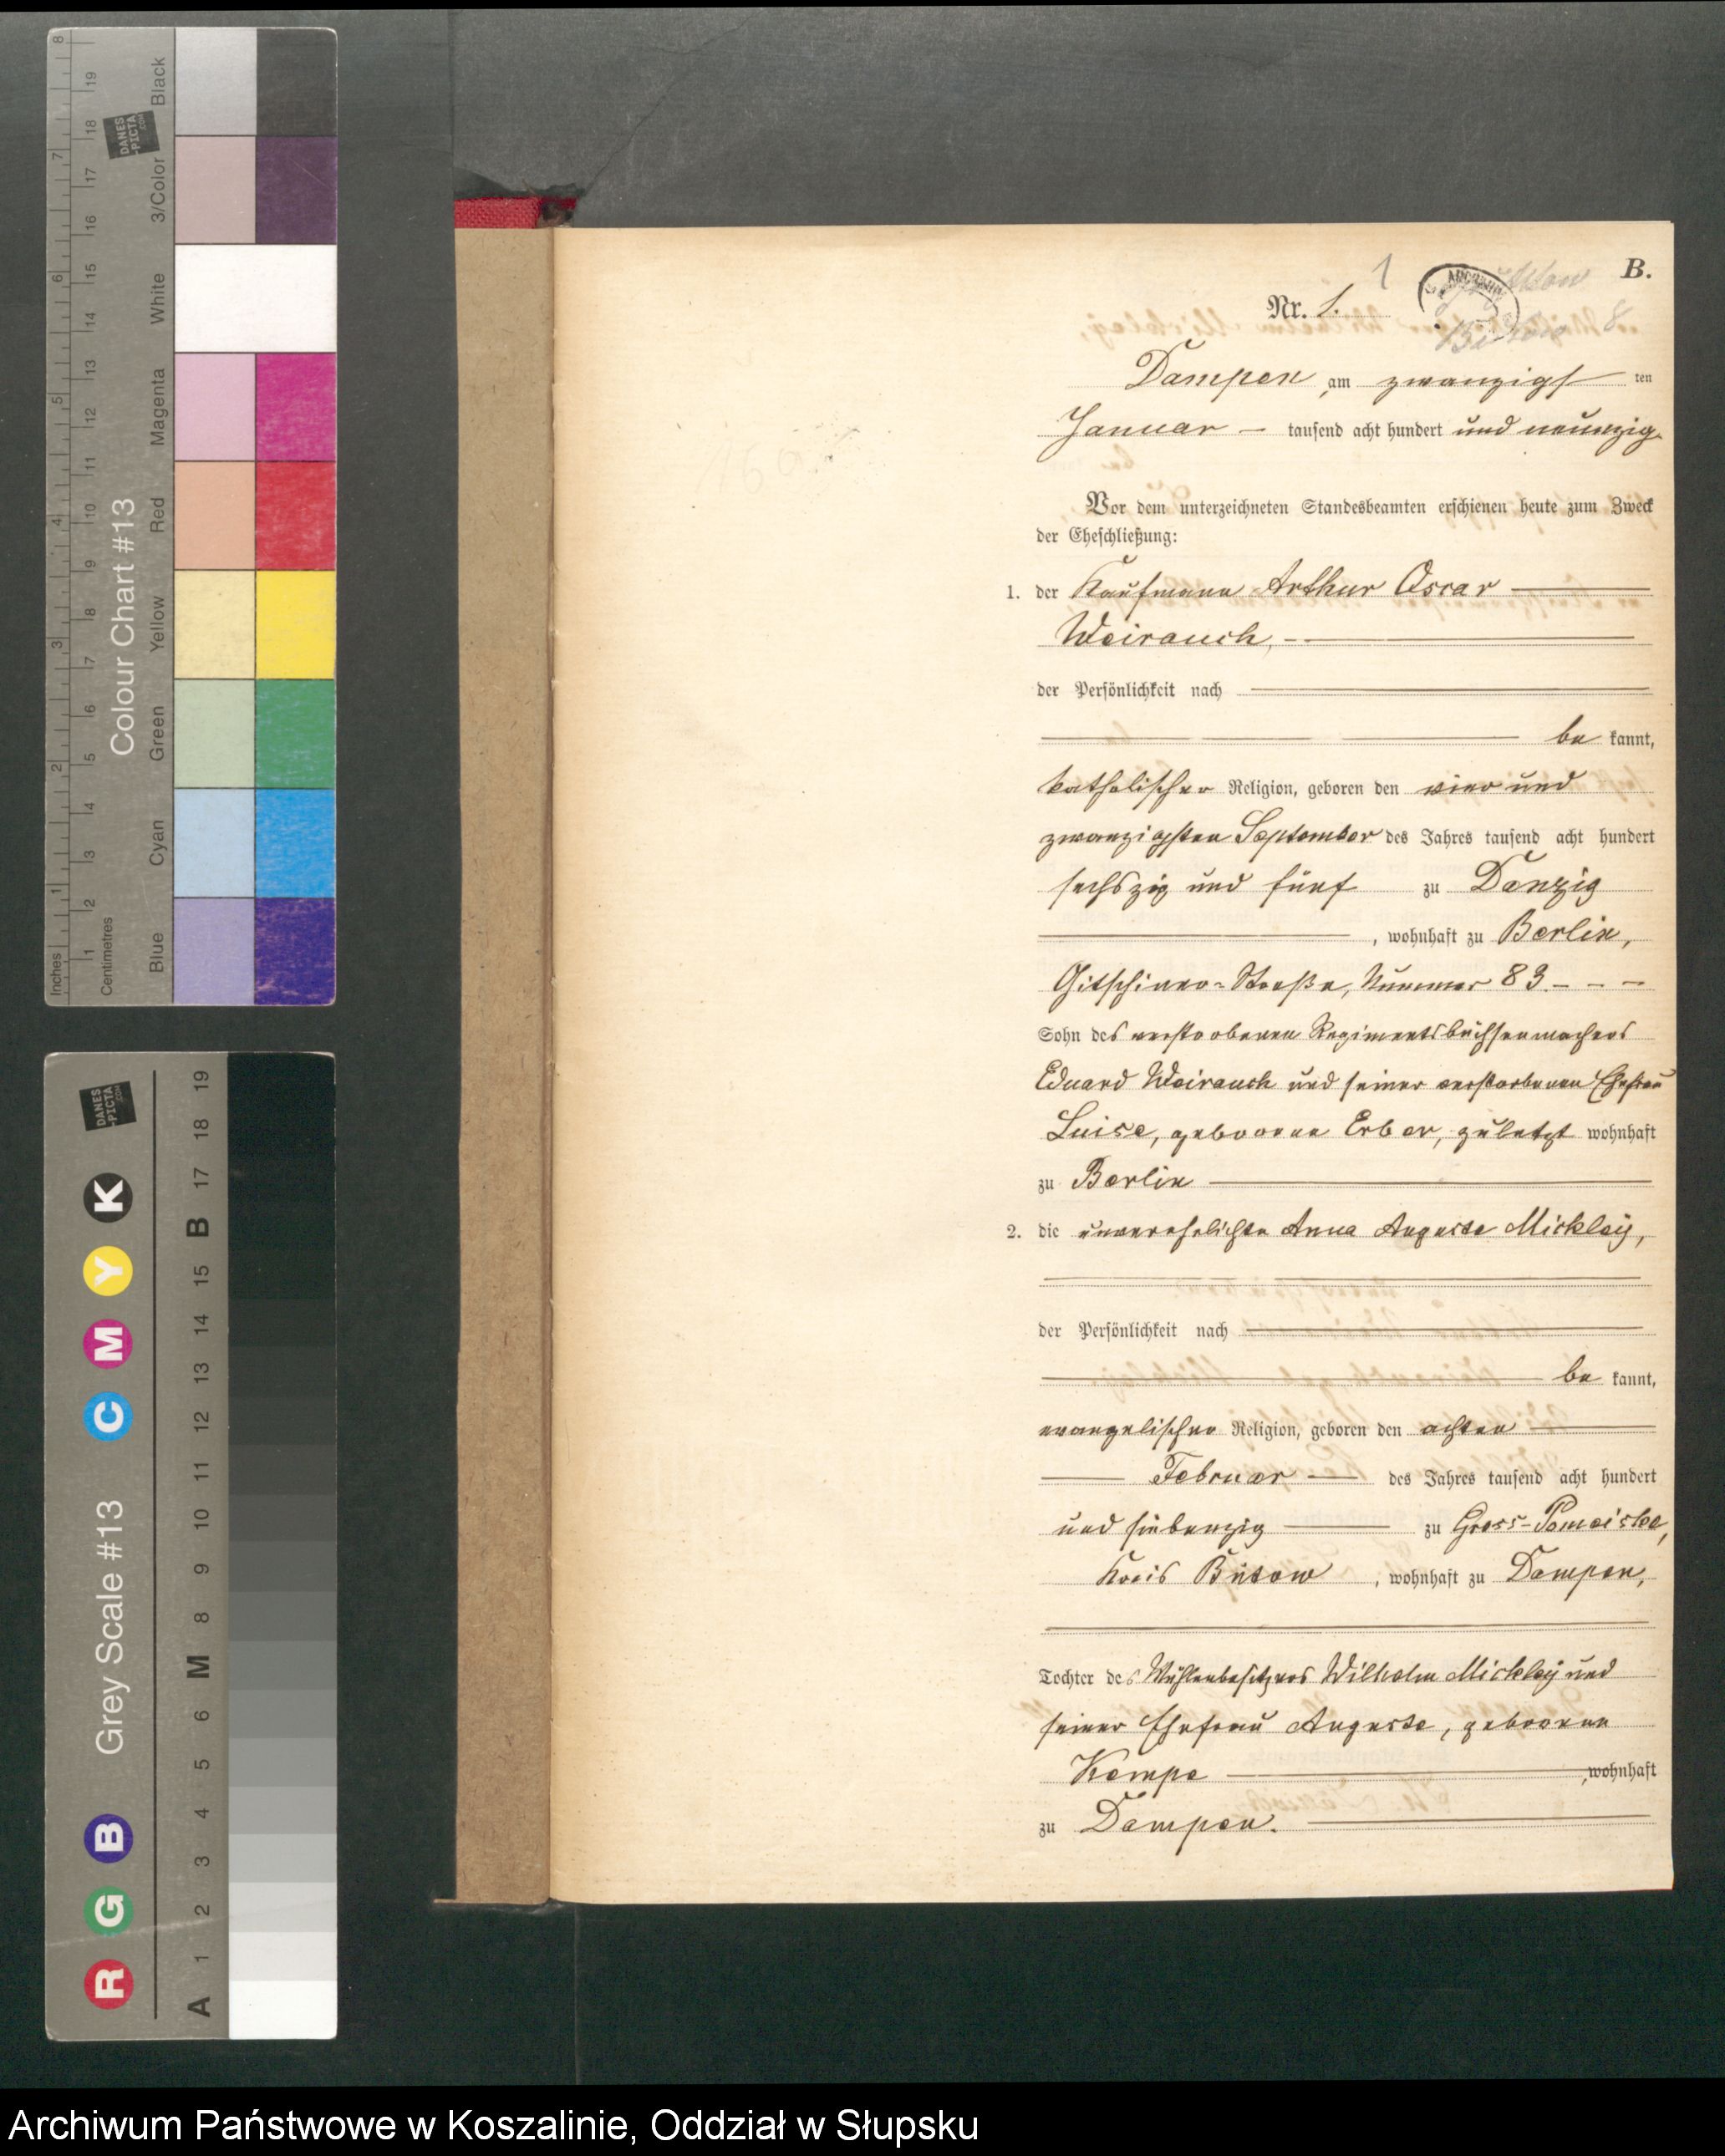 1
B.
Nr. 1.
Dampen, am zwanzigs ten
Januar tausend acht hundert und neunzig
Vor dem unterzeichneten Standesbeamten erschienen heute zum Zweck
der Eheschließung:
1. der Kaufmann Arthur Oscar
Weirauch,
der Persönlichkeit nach
be kannt,
katholischer Religion, geboren den vier und
zwanzigsten September des Jahres tausend acht hundert
sechszig und fünf zu Danzig
, wohnhaft zu Berlin,
Gitschiner-Straße, Nummer 83.
Sohn des verstorbenen Regimentsbüchsenmachers
Eduard Weirauch und seiner verstorbenen Ehefrau
Luise, geborene Erber, zuletzt wohnhaft
zu Berlin
2. die unverehelichte Anna Auguste Mickley,
der Persönlichkeit nach
be kannt,
evangelischer Religion, geboren den achten
Februar des Jahres tausend acht hundert
und siebenzig zu Gross-Pomeiske,
Kreis Bütow, wohnhaft zu Dampen,
Tochter des Mühlenbesitzers Wilhelm Mickley und
seiner Ehefrau Auguste, geborene
Kempe wohnhaft
zu Dampen.
Inches 1 2 3 4 5 6 7 8
Centimetres 1 2 3 4 5 6 7 8 9 10 11 12 13 14 15 16 17 18 19
Colour Chart #13
Blue Cyan Green Yellow Red Magenta White 3/Color Black
DANES
-PICTA
.COM
Grey Scale #13
R G B C M Y K
A 1 2 3 4 5 6 M 8 9 10 11 12 13 14 15 B 17 18 19
DANES
-PICTA
.COM
Archiwum Państwowe w Koszalinie, Oddział w Słupsku